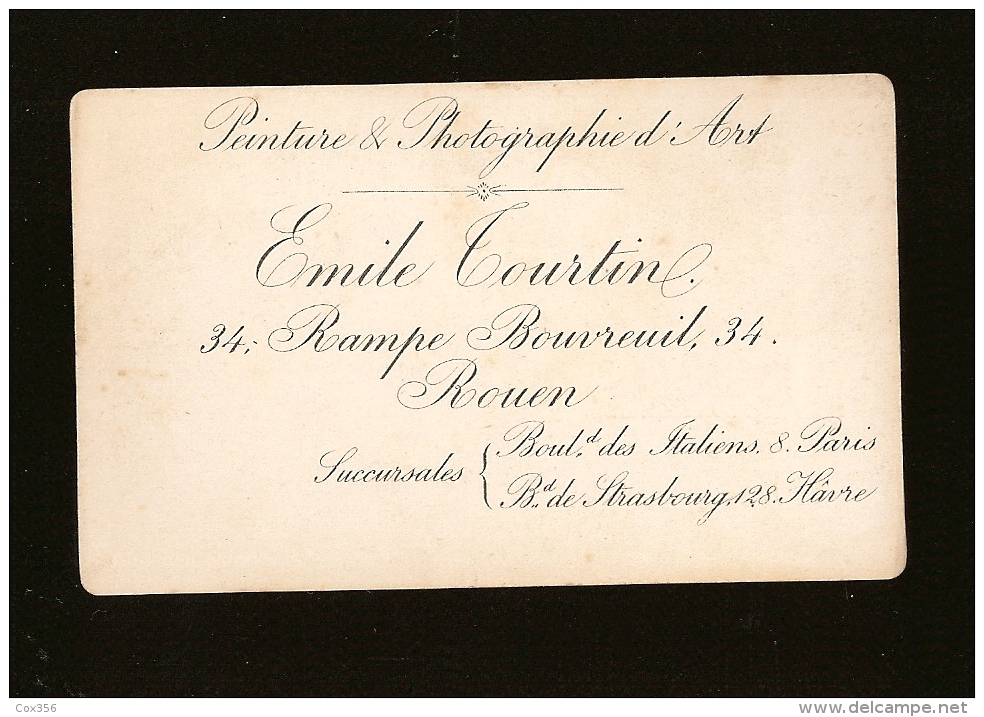 Peinture & Photographie d'Art
Emile Tourtin.
34, Rampe Bouvreuil, 34.
Rouen
Succursales { Boul.d des Italiens. 8. Paris
B.d de Strasbourg, 128. Hâvre
Cox356
delcampe.net